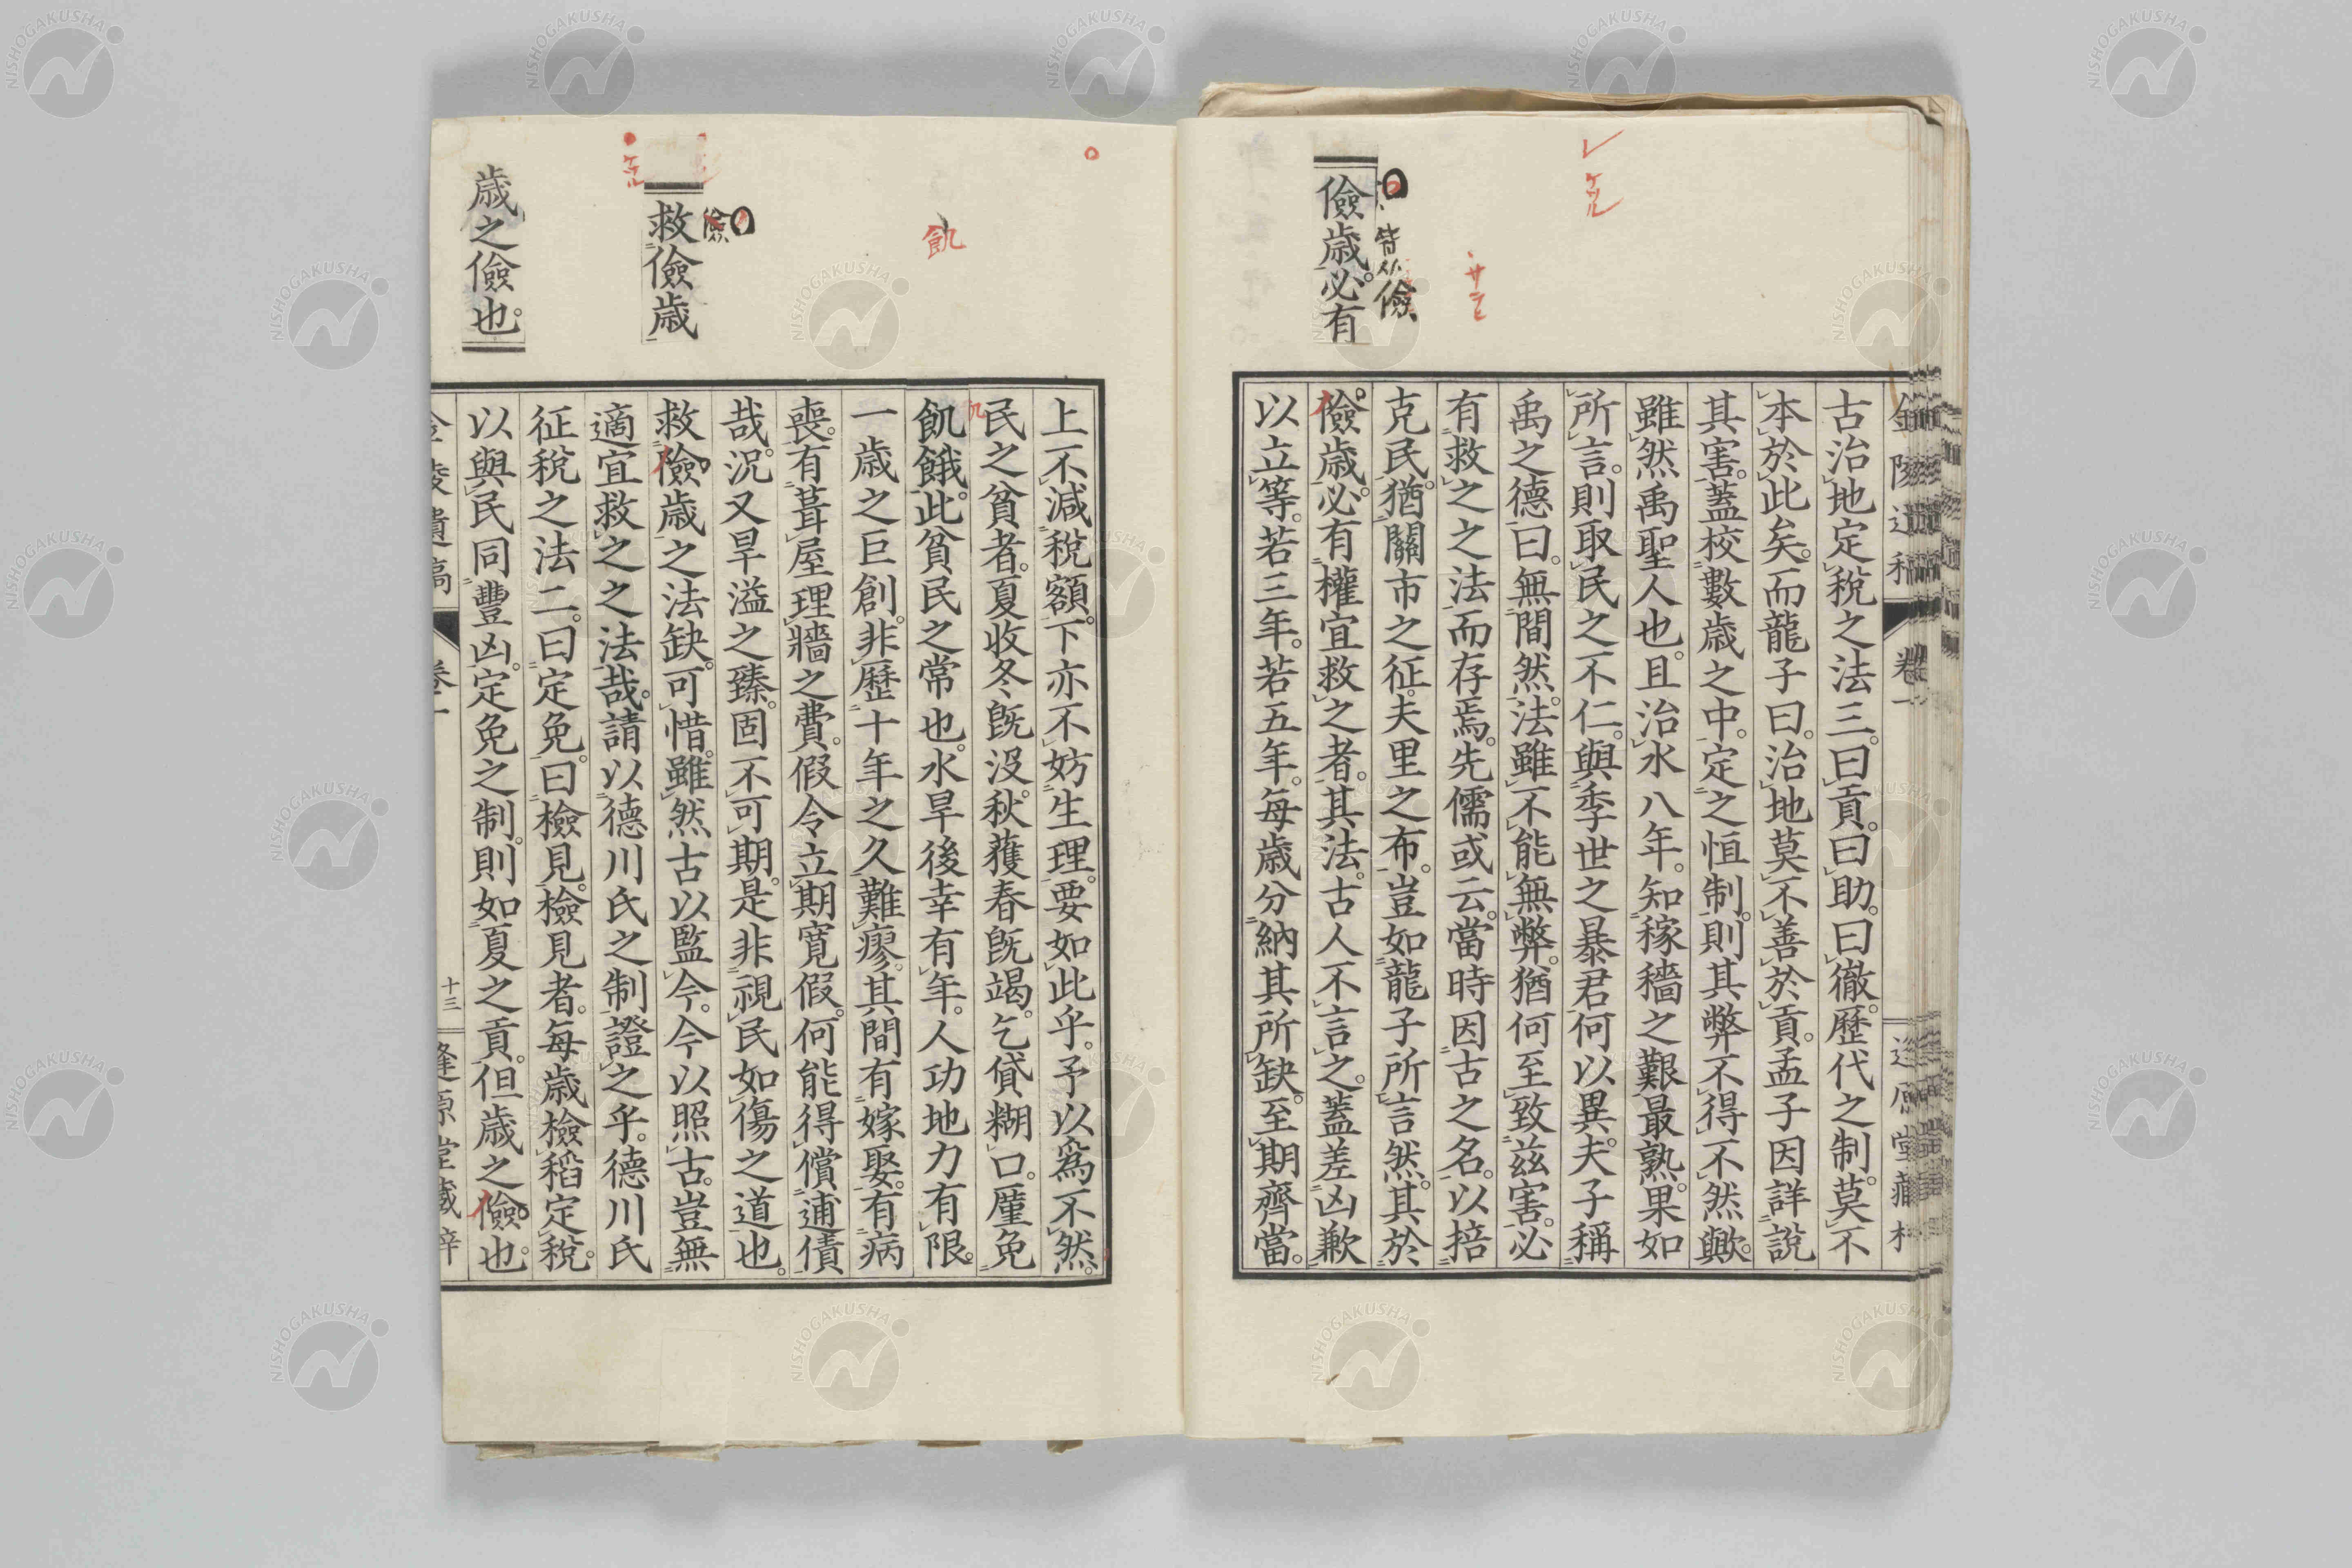 儉歳必有
皆仝儉
ケツル
サミ
金陵遺稿 卷一
古治地定稅之法三。曰貢。曰助。曰徹。歷代之制。莫不
本於此矣。而龍子曰。治地莫不善於貢。孟子因詳說
其害。蓋校數歳之中。定之恒制。則其弊不得不然歟。
雖然禹聖人也。且治水八年。知稼穡之艱最熟。果如
所言。則取民之不仁。與季世之暴君何以異。夫子稱
禹之德曰。無間然。法雖不能無弊。猶何至致茲害。必
有救之之法而存焉。先儒或云。當時因古之名。以掊
克民。猶關市之征。夫里之布。豈如龍子所言然。其於
儉歳。必有權宜救之者。其法。古人不言之。蓋差凶歉
以立等。若三年。若五年。每歳分納其所缺。至期齊當。
飢
救儉歳
儉
ケツル
歳之儉也。
上不減稅額。下亦不妨生理。要如此乎。予以爲不然。
民之貧者。夏收冬既沒。秋蓷春既竭。乞貸糊口。厪免
飢餓。此貧民之常也。水旱後幸有年。人功地力有限。
一歳之巨創。非歷十年之久難瘳。其間有嫁娶。有病
喪。有葺屋理牆之費。假令立期寬假。何能得償逋債
哉。況又旱溢之臻。固不可期。是非視民如傷之道也。
救儉歳之法缺。可惜。雖然古以監今。今以照古。豈無
適宜救之之法哉。請以德川氏之制證之乎。德川氏
征稅之法二。曰定免。曰檢見。檢見者。每歳檢稻定稅。
以與民同豐凶。定免之制。則如夏之貢。但歳之儉也。
金陵遺稿 卷一 十三 逢原堂藏梓